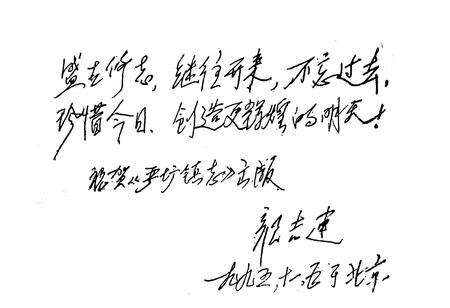 盛世修志,继往开来,不忘过去,
珍惜今日、创造更辉煌的明天!
祝贺《镇志》出版
志建
一九九五,十一,五于北京